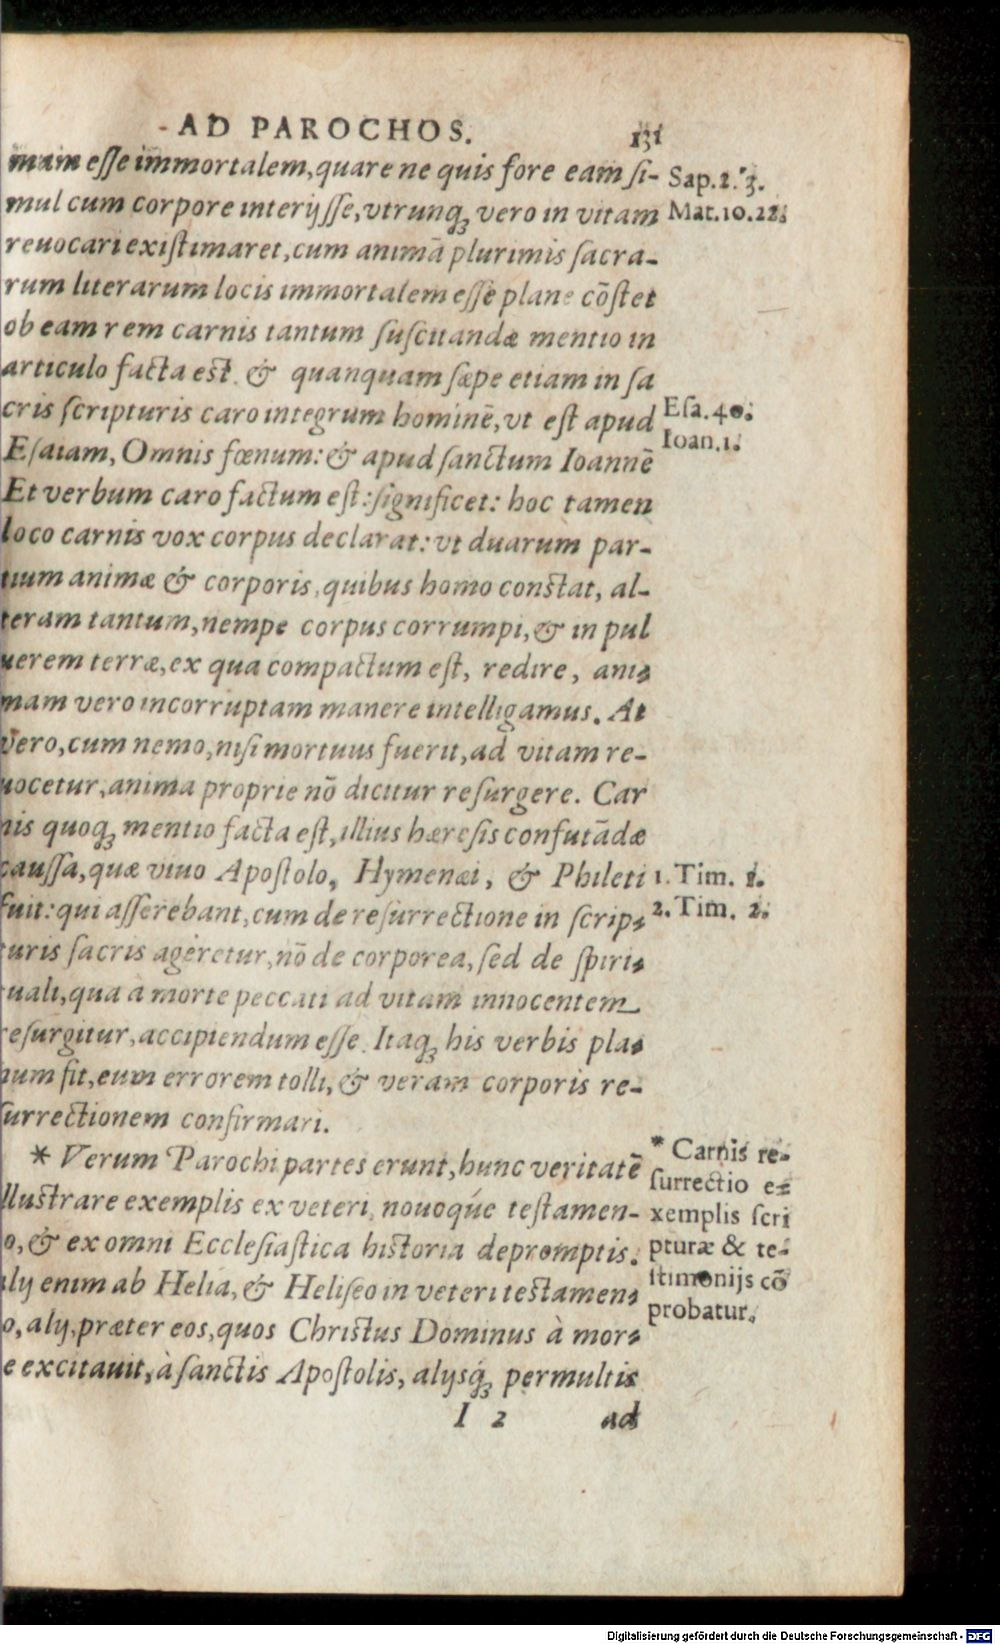 AD PAROCHOS. 131
mam esse immortalem, quare ne quis fore eam si-
mul cum corpore interijsse, vtrunq; vero in vitam
reuocari existimaret, cum animā plurimis sacra-
rum literarum locis immortalem esse plane cōstet
ob eam rem carnis tantum suscitandæ mentio in
articulo facta est. & quanquam sæpe etiam in sa
cris scripturis caro integrum hominē, vt est apud
Esaiam, Omnis fœnum: & apud sanctum Ioannē
Et verbum caro factum est: significet: hoc tamen
loco carnis vox corpus declarat: vt duarum par-
tium animæ & corporis, quibus homo constat, al-
teram tantum, nempe corpus corrumpi, & in pul
uerem terræ, ex qua compactum est, redire, ani-
mam vero incorruptam manere intelligamus. At
vero, cum nemo, nisi mortuus fuerit, ad vitam re-
uocetur, anima proprie nō dicitur resurgere. Car
nis quoq; mentio facta est, illius hæresis confutādæ
caussa, quæ viuo Apostolo, Hymenæi, & Phileti
fuit: qui asserebant, cum de resurrectione in scrip-
turis sacris ageretur, nō de corporea, sed de spiri-
tuali, qua a morte peccati ad vitam innocentem
resurgitur, accipiendum esse. Itaq; his verbis pla-
num fit, eum errorem tolli, & veram corporis re-
surrectionem confirmari.
* Verum Parochi partes erunt, hunc veritatē
llustrare exemplis ex veteri, nouoqúe testamen-
o, & ex omni Ecclesiastica historia depromptis.
lij enim ab Helia, & Heliseo in veteri testamen-
o, alij, præter eos, quos Christus Dominus à mor-
e excitauit, à sanctis Apostolis, alijsq́; permultis
I 2 ad
Sap. 2. 3.
Mat. 10. 22.
Esa. 40.
Ioan. 1.
1. Tim. 1.
2. Tim. 2.
* Carnis re-
surrectio e-
xemplis scri
pturæ & te-
stimonijs cō
probatur.
Digitalisierung gefördert durch die Deutsche Forschungsgemeinschaft - DFG